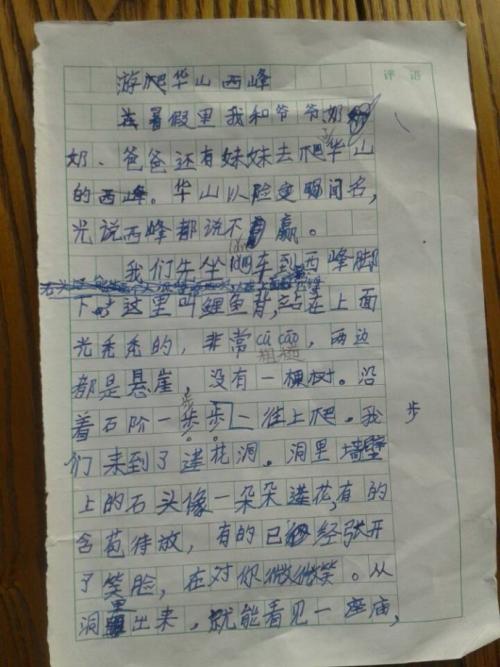 评语
游爬华山西峰
在暑假里我和爷爷奶
奶、爸爸还有妹妹去爬华山
的西峰。华山以险变瞬间名,
光说西峰都说不赢。
我们先坐车到西峰脚
下,这里叫鲤鱼背,站在上面
光秃秃的,非常cū cāo,两边
粗糙
都是悬崖,没有一棵树。沿
着石阶一步步往上爬。我
步
们来到了莲花洞。洞里墙壁
上的石头像一朵朵莲花,有的
含苞待放,有的已经张开
了笑脸,在对你微微笑。从
洞里出来,就能看见一座庙,